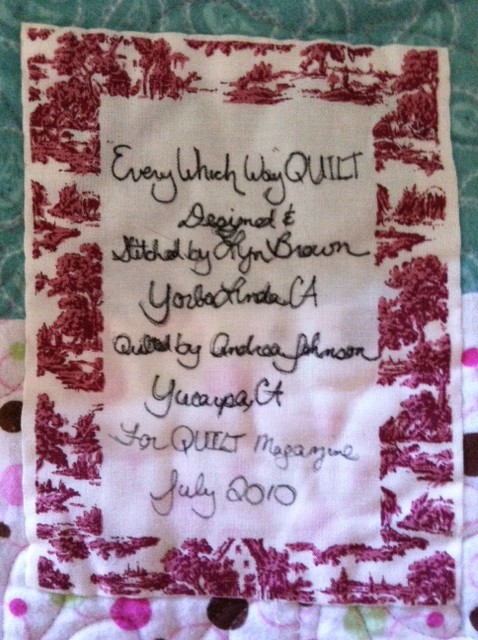 Every Which Way QUILT
Designed &
Stitched by Lyn Brown
Yorba Linda CA
Quilted by Andrea Johnson
Yucaipa, CA
For QUILT Magazine
July 2010